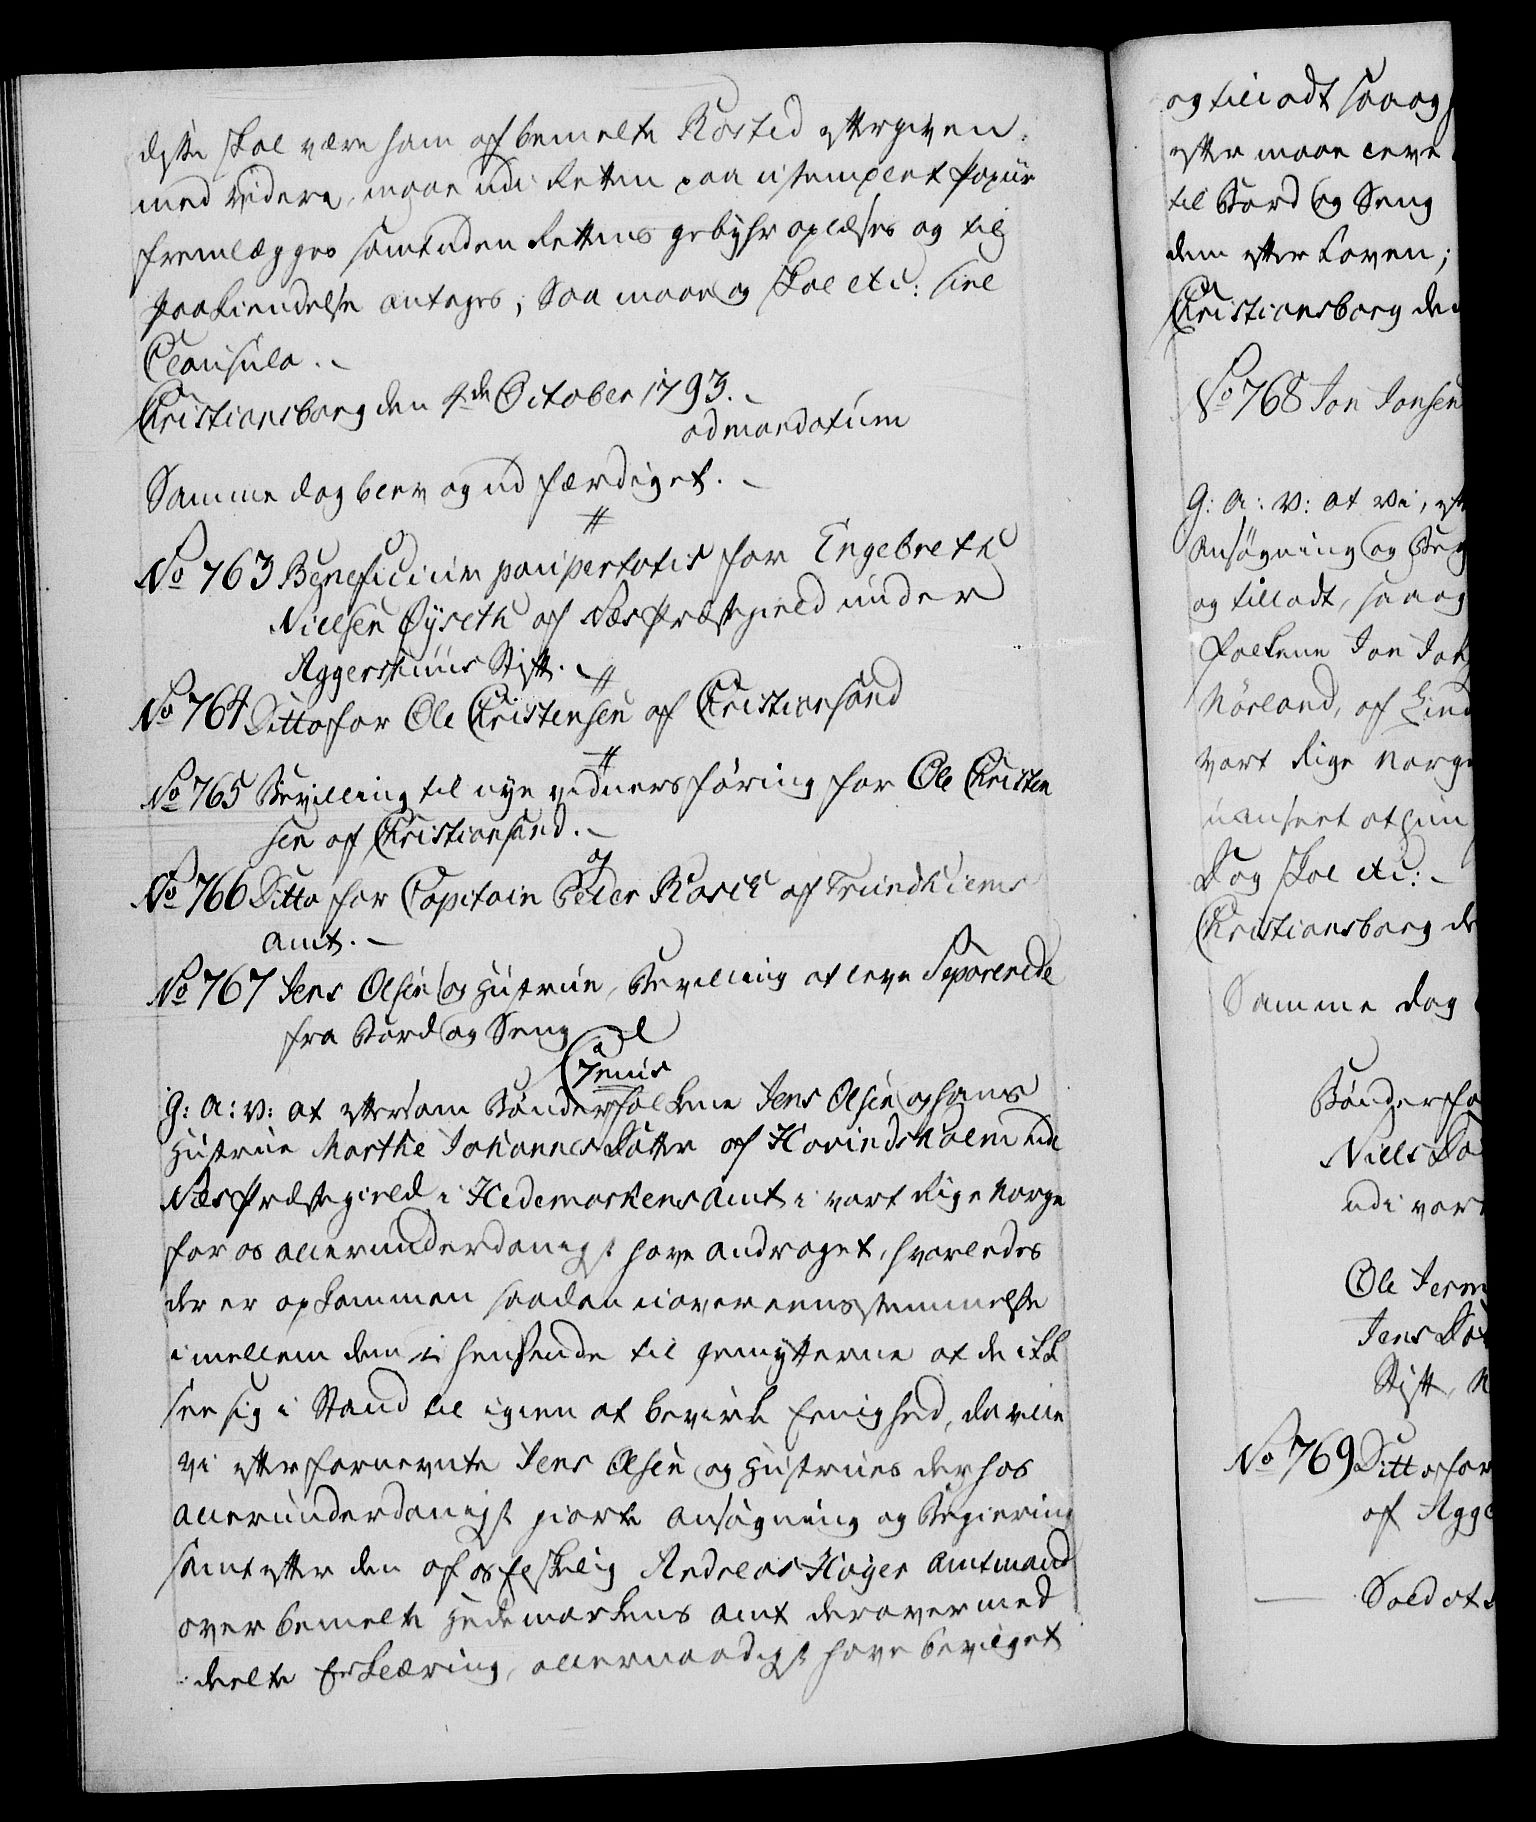 dette skal være ham af bemelte Rosted eftergiven,
med videre, maae udi Retten paa ustemplet Papiir
fremlægges samt uden Rettens gebyhr oplæses og til
Paakiendelse antages; Saa maae og skal etc: sine
Clausula.
Christiansborg den 4de October 1793.
ad mandatum
Samme dag blev og udfærdiget.
No 763 Beneficium paupertatis for Engebreth
Nielsen Øyseth af Næs Præstegield under
Aggershuus Stift.
No 764 Ditto for Ole Christensen af Christiansand
No 765 Bevilling til nye vidners føring for Ole Christen
sen af Christiansand.
No 766 Ditto for Capitain Peder Rosch af Trundhiems
Amt.
No 767 Jens Olsen og Hustrue, Bevilling at leve Separerede
fra Bord og Seng
Genis
G: A: V: at eftersom Bønderfolkene Jens Olsen og hans
Hustrue Marthe Johannes Datter af Hovindsholm udi
Næs Præstegield i Hedemarkens Amt i vort Rige Norge
for os allerunderdanigst have andraget, hvorledes
der er opkommen saadan uovereensstemmelse
imellem dem i henseende til gemytterne at de ikke
see sig i Stand til igien at bevirke Eenighed, da ville
vi efter fornevnte Jens Olsen og Hustrues derhos
allerunderdanigst giorte Ansøgning og Begiering
samt efter den af os Elskelig Andreas Høyer Amtmand
over bemelte Hedemarkens Amt derover med
deelte Erklæring, allernaadigst have bevilget
og tilladt saa og
efter maae leve
til Bord og Seng
dem efter Loven;
Christiansborg den
No 768 Jon Jonsen
G: A: V: at vi, eft
Ansøgning og Beg
og tilladt, saa og
folkene Jon Jons
Nørland, af Lind
vort Rige Norge
uanseet at hun
Dog skal etc:
Christiansborg de
Samme dag
Bønderfo
Niels Da
udi vor
Ole Jerm
Jens Dat
Stift, N
No 769 Ditto for
af Agge
Soldat